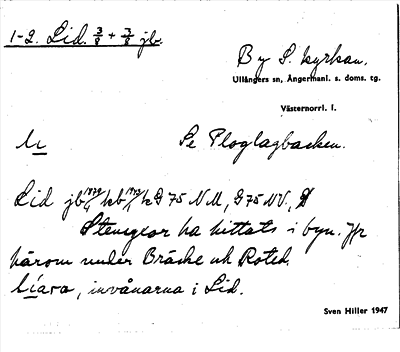 1-2. Lid. 3/8 + 7/8 jb.
By S. kyrkan.
Ullångers sn, Ångermanl. s. doms. tg.
Västernorrl. l.
Se Ploglagbacken.
Lid jb kb G 75 NM, G 75 NV,
Stensaker ha hittats i byn. Jfr
härom under Bräcke och Roted.
líara, invånarna i Lid.
Sven Hiller 1947